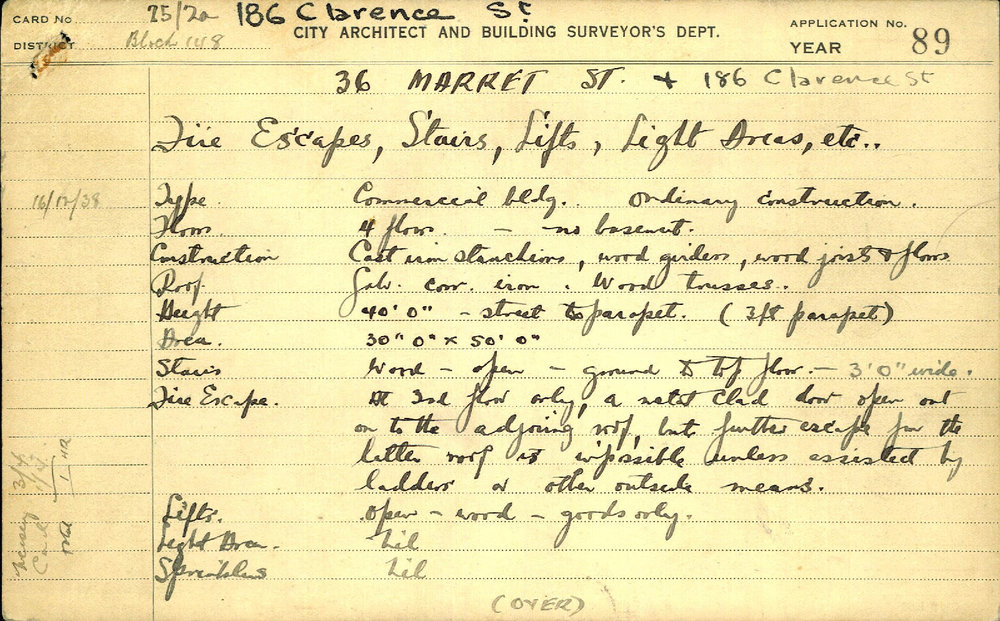 CARD No 25/2a 186 Clarence St
CITY ARCHITECT AND BUILDING SURVEYOR'S DEPT.
APPLICATION No.
DISTRICT Block 148
YEAR 89
36 MARKET ST. + 186 Clarence St
Fire Escapes, Stairs, Lifts, Light Areas, etc..
16/12/38 Type Commercial bldg. Ordinary construction.
Floors 4 floors - no basement.
Construction Cast iron stanchions, wood girders, wood joists & floors
Roof. Galv. corr. iron. Wood trusses..
Height 40'0" - street to parapet. (3ft parapet)
Area. 30" 0" x 50' 0"
Stairs Wood - open - ground to top floor. - 3'0" wide.
Fire Escape. At 2nd floor only, a metal clad door open out
on to the adjoining roof, but further escape from the
latter roof is impossible unless assisted by
ladders or other outside means.
Lifts. open - wood - goods only.
Light Area. Nil
Sprinklers Nil
(OVER)
3/4
1/4
1 HR
Card